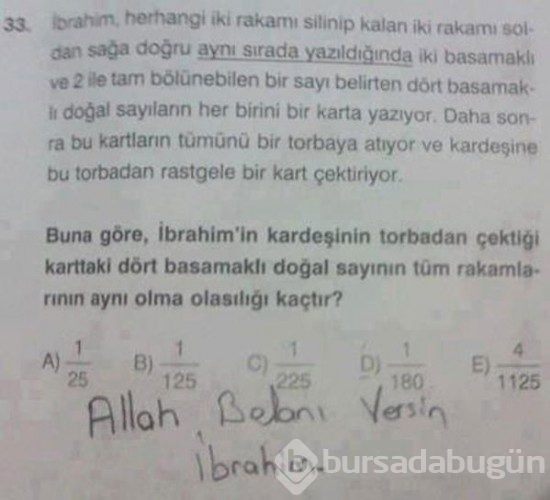 33. İbrahim, herhangi iki rakamı silinip kalan iki rakamı sol-
dan sağa doğru aynı sırada yazıldığında iki basamaklı
ve 2 ile tam bölünebilen bir sayı belirten dört basamak-
lı doğal sayıların her birini bir karta yazıyor. Daha son-
ra bu kartların tümünü bir torbaya atıyor ve kardeşine
bu torbadan rastgele bir kart çektiriyor.
Buna göre, İbrahim'in kardeşinin torbadan çektiği
karttaki dört basamaklı doğal sayının tüm rakamla-
rının aynı olma olasılığı kaçtır?
A) 1/25 B) 1/125 C) 1/225 D) 1/180 E) 4/1125
Allah Belanı Versin
İbrahim.
bursadabugün